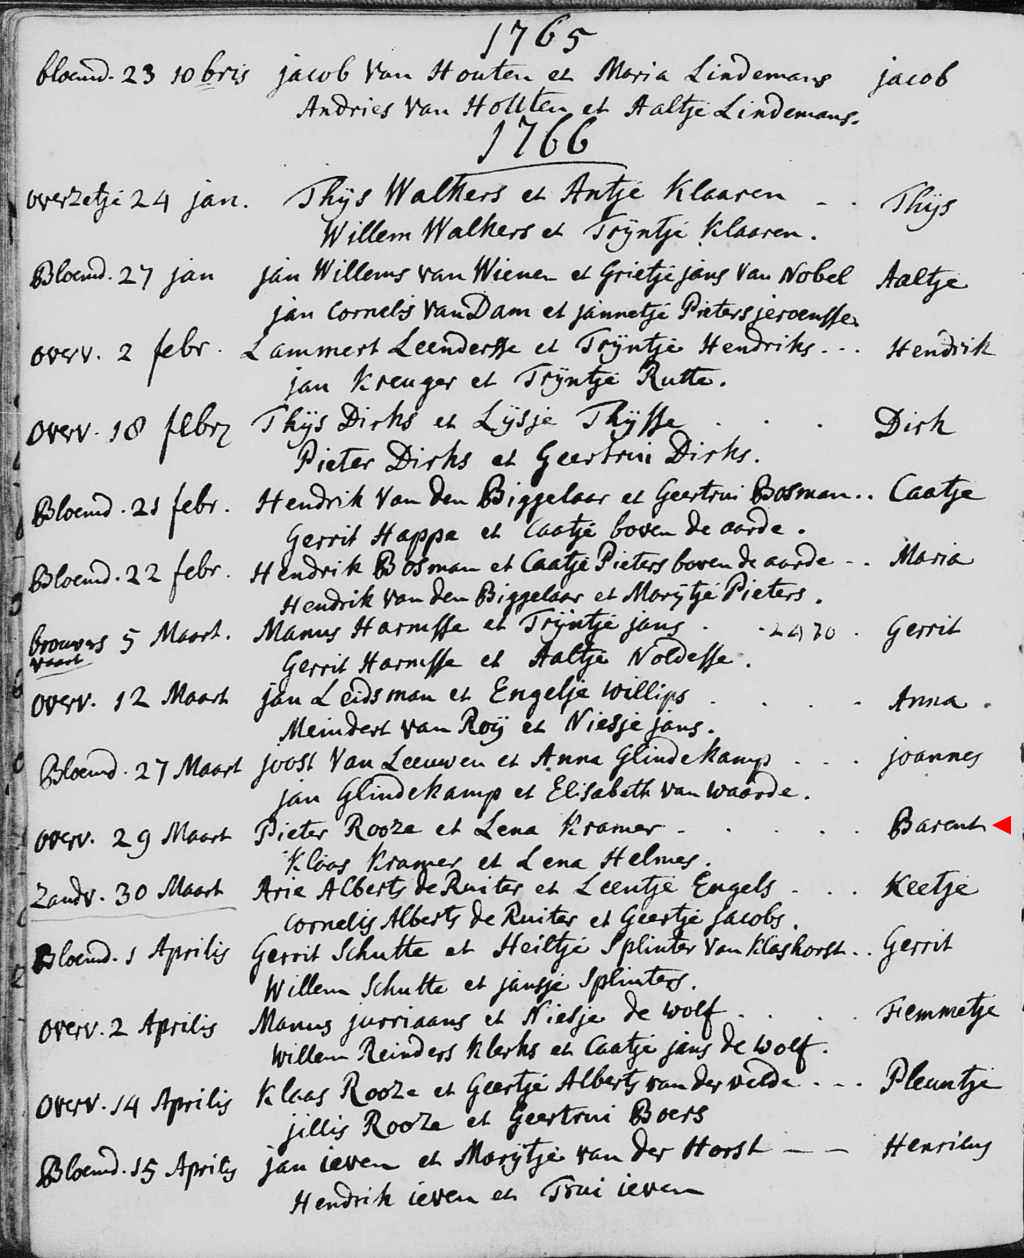 1765
bloemd. 23 10bris jacob Van Houten et Maria Lindemans jacob
Andries van Houten et Aaltje Lindemans.
1766
overzetje 24 jan. Thijs Walkers et Antje Klaaren - . Thijs
Willem Walkers et Trÿntje Klaaren.
Bloemd. 27 jan jan Willems van Wienen et Grietje jans Van Nobel Aaltje
jan Cornelis Van Dam et jannetje Pieters jeroensse.
overv. 2 febr. Lammert Leendersse et Trÿntje Hendriks... Hendrik
jan Kreuger et Trÿntje Rutte.
overv. 18 febr Thÿs Dirks et Lÿsje Thÿsse . . . Dirk
Pieter Dirks et Geertrui Dirks.
Bloemd. 21 febr. Hendrik Van den Biggelaar et Geertrui Bosman.. Caatje
Gerrit Happe et Caatje boven de aarde.
Bloemd. 22 febr. Hendrik Bosman et Caatje Pieters boven de aarde -. Maria
Hendrik van den Biggelaar et Marÿtje Pieters.
brouwers 5 Maart. Manus Harmsse et Trÿntje jans . . Gerrit
vaart Gerrit Harmsse et Aaltje Noldesse.
overv. 12 Maart jan Leidsman et Engelje willips . . . . Anna.
Meindert van Roÿ et Niesje jans.
Bloemd. 27 Maart joost Van Leeuwen et Anna Glindekamp . . . joannes
jan Glindekamp et Elisabeth van waarde.
overv. 29 Maart Pieter Rooze et Lena Kramer . . . . . Barent
Klaas Kramer et Lena Helmes.
Zandv. 30 Maart Arie Alberts de Ruiter et Leentje Engels . . . Keetje
Cornelis Alberts de Ruiter et Geertje Jacobs.
Bloemd. 1 Aprilis Gerrit Schutte et Heiltje Splinter Van Klashorst.. Gerrit
Willem Schutte et jansje Splinters.
overv. 2 Aprilis Manus jurriaans et Niesje de wolf . . . . Femmetje
Willem Reinders Klerks et Caatje jans de wolf.
overv. 14 Aprilis Klaas Rooze et Geertje Alberts van der velde . . . Pleuntje
jillis Rooze et Geertrui Boers
Bloemd. 15 Aprilis jan ieven et Marÿtje van der Horst - - Henricus
Hendrik ieven et Trui ieven